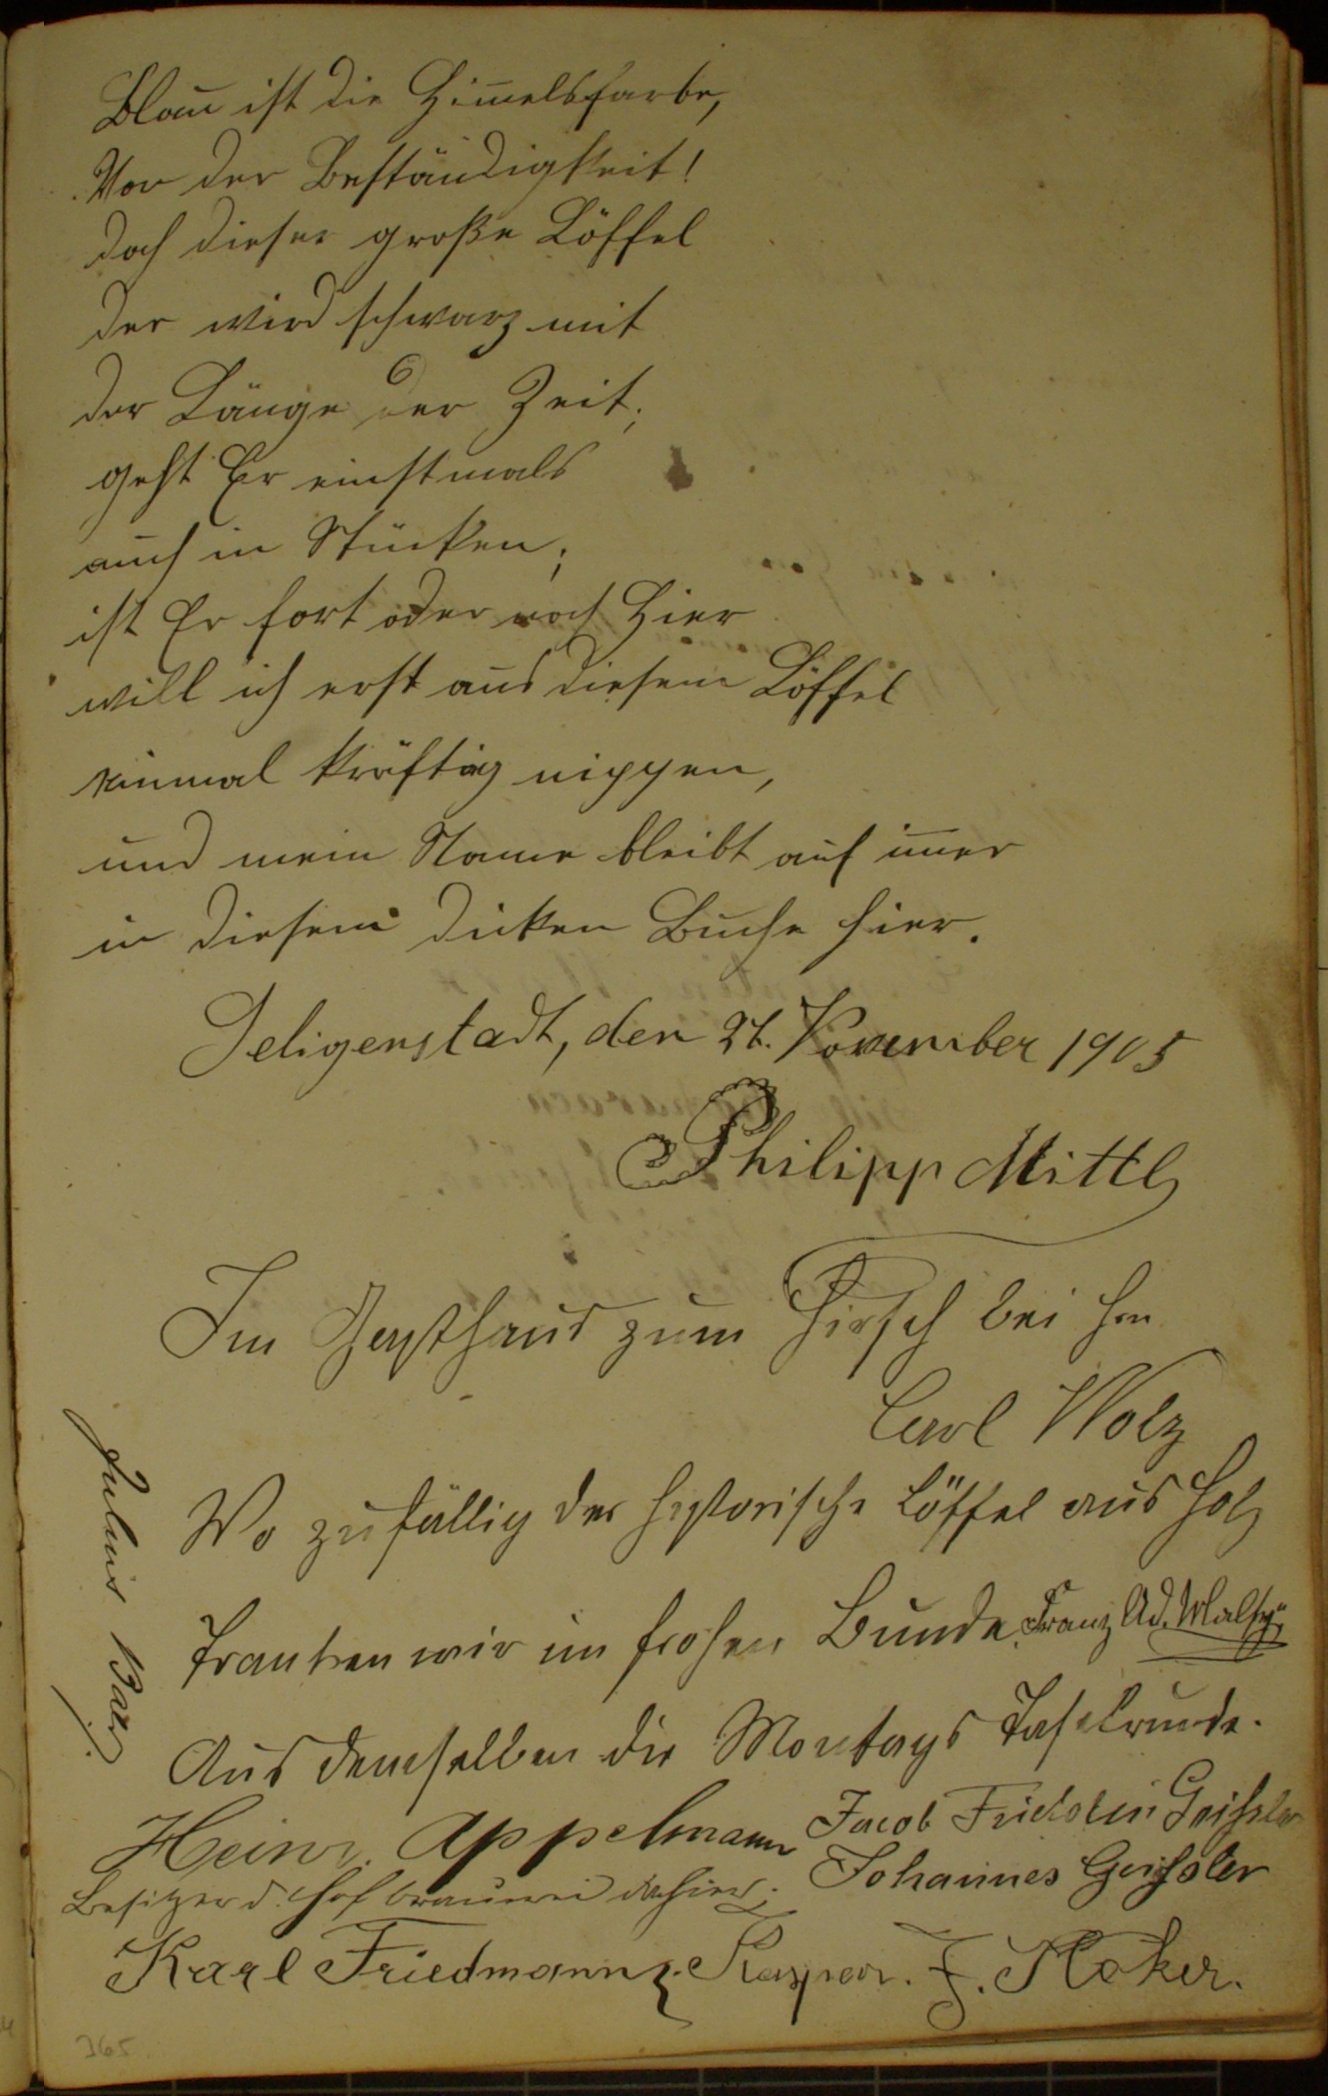 Blau ist die Him̅elsfarbe,
Von der Beständigkeit!
doch dieser große Löffel
der wird schwarz mit
der Länge der Zeit;
geht Er einstmals
auch in Stücken;
ist Er fort oder noch Hier
will ich erst aus diesem Löffel
einmal kräftig nippen,
und mein Name bleibt auf im̅er
in diesem dicken Buche hier.
Seligenstadt, den 26. November 1905
Philipp Mittl
Im Gasthaus zum Hirsch bei Hrn
Carl Wolz
Wo zufällig der historische Löffel aus Holz
Tranken wir im frohen Bunde Franz Ad.
Aus demselben die Montags Tafelrunde.
Heinr. Appelmann
Besitzer d. Hofbrauerei dahier.
Jacob Fridolin Geissler
Johannes Geissler
Karl Friedmann Kasper. J.
Julius
365